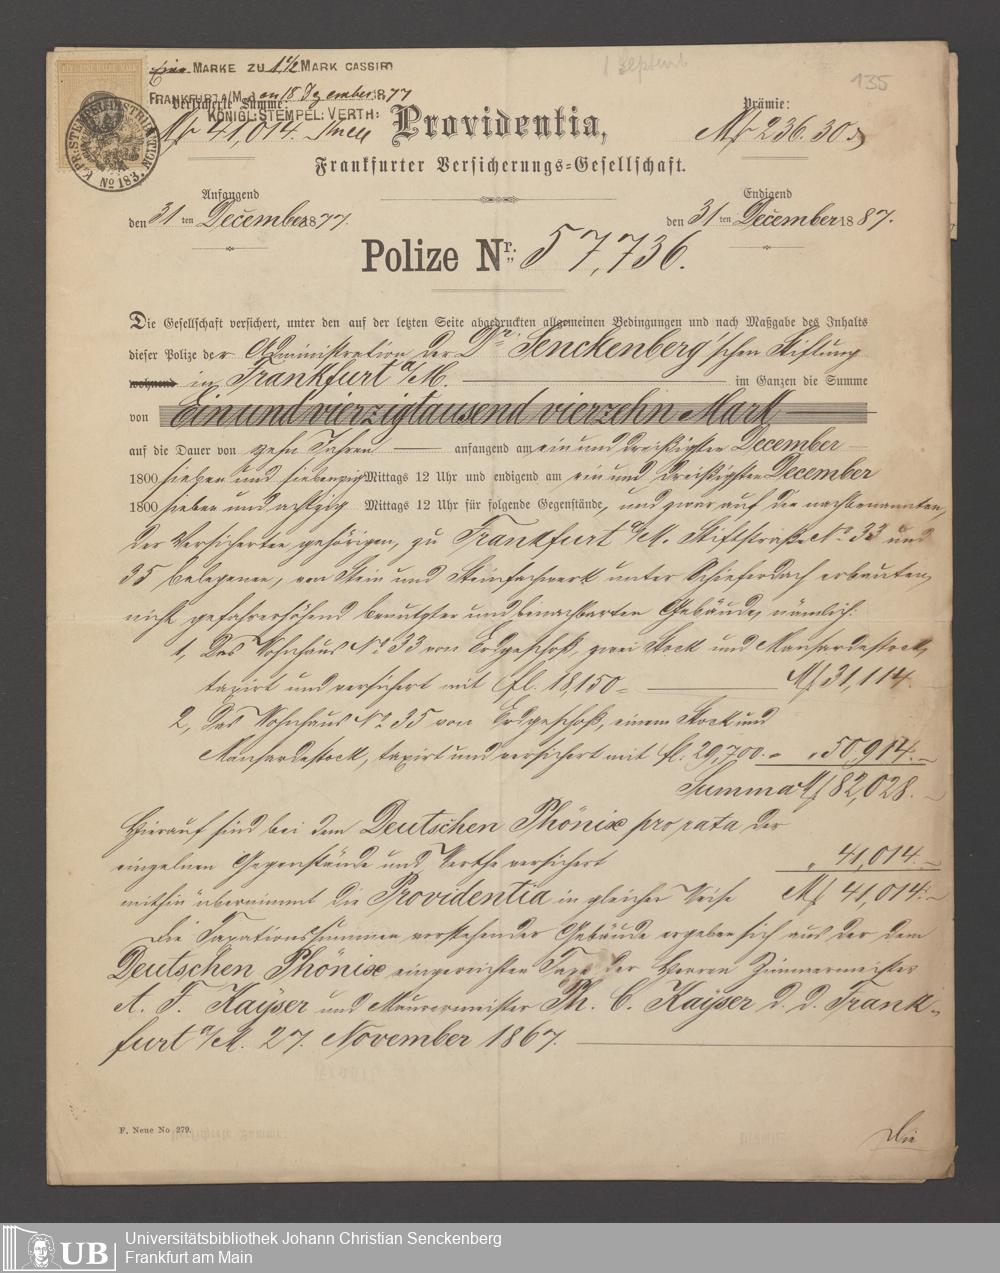 1 Septemb
135
Eine MARKE ZU 1 1/2 MARK CASSIRT
FRANKFURT A/M den 18 Dezember 1877
KÖNIGL: STEMPEL: VERTH:
K.PR: STEMPELDISTRIBUTION No 183.
Versicherte Summe:
Mk 41,014.
Providentia,
Prämie:
Mk 236. 30 ₰
Frankfurter Versicherungs=Gesellschaft.
Anfangend
den 31ten December 1877.
Endigend
den 31ten December 1887.
Polize Nr. 57,736.
Die Gesellschaft versichert, unter den auf der letzten Seite abgedruckten allgemeinen Bedingungen und nach Maßgabe des Inhalts
dieser Polize der Administration der Dr. Senckenberg'schen Stiftung
wohnend in Frankfurt a/M. im Ganzen die Summe
von Ein und vierzigtausend vierzehn Mark
auf die Dauer von zehn Jahren anfangend am ein und dreißigsten December
1800 sieben und siebenzig Mittags 12 Uhr und endigend am ein und dreißigsten December
1800 sieben und achtzig Mittags 12 Uhr für folgende Gegenstände, und zwar auf die nachbenannten,
der Versicherten gehörigen, zu Frankfurt a/M. Stiftstraße No 33 und
35 belegenen, von Stein und Steinfachwerk unter Schieferdach erbauten,
nicht gefahrerhöhend benutzten und benachbarten Gebäude, nämlich:
1, Das Wohnhaus No 33 von Erdgeschoß, zwei Stock und Mansardestock,
taxirt und versichert mit fl. 18,150 Mk 31,114.
2, Das Wohnhaus No 35 von Erdgeschoß, einem Stock und
Mansardestock, taxirt und versichert mit fl. 29,700. " 50,914.
Summa Mk 82,028.
Hierauf sind bei dem Deutschen Phönix pro rata der
einzelnen Gegenstände und Werthe versichert " 41,014.
mithin übernimmt die Providentia in gleicher Weise Mk 41,014.
Die Taxationssummen vorstehender Gebäude ergeben sich aus der dem
Deutschen Phönix eingereichten Taxe der Herren Zimmermeister
A. F. Kayser und Maurermeister Ph. C. Kayser d. d. Frank-
furt a/M. 27. November 1867.
F. Neue No 279.
Die
UB
Universitätsbibliothek Johann Christian Senckenberg
Frankfurt am Main